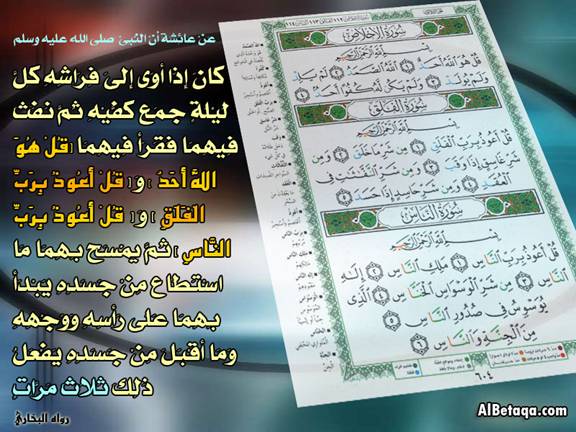 عن عائشة أن النبي صلى الله عليه وسلم
كان إذا أوى إلى فراشه كل
ليلة جمع كفيه ثم نفث
فيهما فقرأ فيهما {قُلْ هُوَ
اللهُ أَحَدٌ} و{قُلْ أَعُوذُ بِرَبِّ
الفَلَقِ} و{قُلْ أَعُوذُ بِرَبِّ
النَّاسِ} ثم يمسح بهما ما
استطاع من جسده يبدأ
بهما على رأسه ووجهه
وما أقبل من جسده يفعل
ذلك ثلاث مرات
رواه البخاري
سُورَةُ الإِخْلَاصِ
بِسْمِ اللَّهِ الرَّحْمَٰنِ الرَّحِيمِ
قُلْ هُوَ اللَّهُ أَحَدٌ ١ اللَّهُ الصَّمَدُ ٢ لَمْ يَلِدْ
وَلَمْ يُولَدْ ٣ وَلَمْ يَكُن لَّهُ كُفُوًا أَحَدٌ ٤
سُورَةُ الفَلَقِ
بِسْمِ اللَّهِ الرَّحْمَٰنِ الرَّحِيمِ
قُلْ أَعُوذُ بِرَبِّ الْفَلَقِ ١ مِن شَرِّ مَا خَلَقَ ٢ وَمِن
شَرِّ غَاسِقٍ إِذَا وَقَبَ ٣ وَمِن شَرِّ النَّفَّاثَاتِ فِي
الْعُقَدِ ٤ وَمِن شَرِّ حَاسِدٍ إِذَا حَسَدَ ٥
سُورَةُ النَّاسِ
بِسْمِ اللَّهِ الرَّحْمَٰنِ الرَّحِيمِ
قُلْ أَعُوذُ بِرَبِّ النَّاسِ ١ مَلِكِ النَّاسِ ٢ إِلَٰهِ
النَّاسِ ٣ مِن شَرِّ الْوَسْوَاسِ الْخَنَّاسِ ٤ الَّذِي
يُوَسْوِسُ فِي صُدُورِ النَّاسِ ٥
مِنَ الْجِنَّةِ وَالنَّاسِ ٦
٦٠٤
AlBetaqa.com